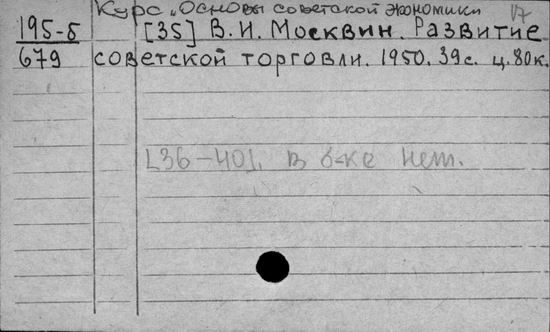 Курс „Основы советской экономики
17
195-б [35] В. И. Москвин. Развитие
679 советской торговли. 1950. 39с. ц. 80к.
L36-401. в б-ке нет.